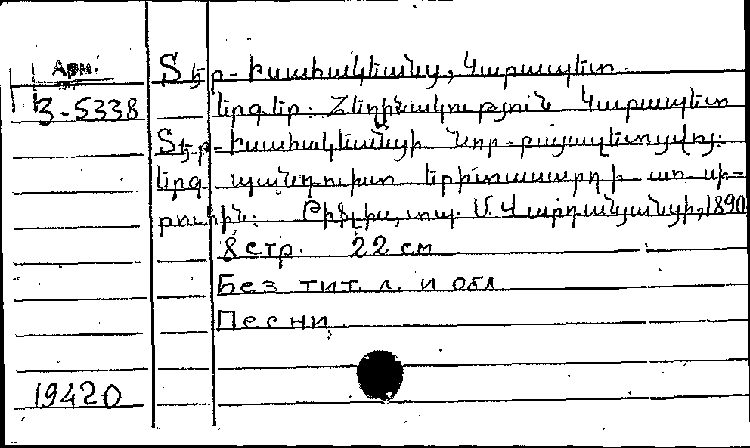 Арм.
Տէր-Իսահակեանց, Կարապետ
3-5338
Երգեր: Հեղինակություն Կարապետ
Տէր-Իսահակեանցի Նոր-բայազետցվոյ:
Երգ պանդուխտ երիտասարդի առ սի-
րուհին: Թիֆլիս, տպ. Մ. Վարդանյանցի, 1890
8 стр. 22 см
Без тит. л. и обл
Песни
19420